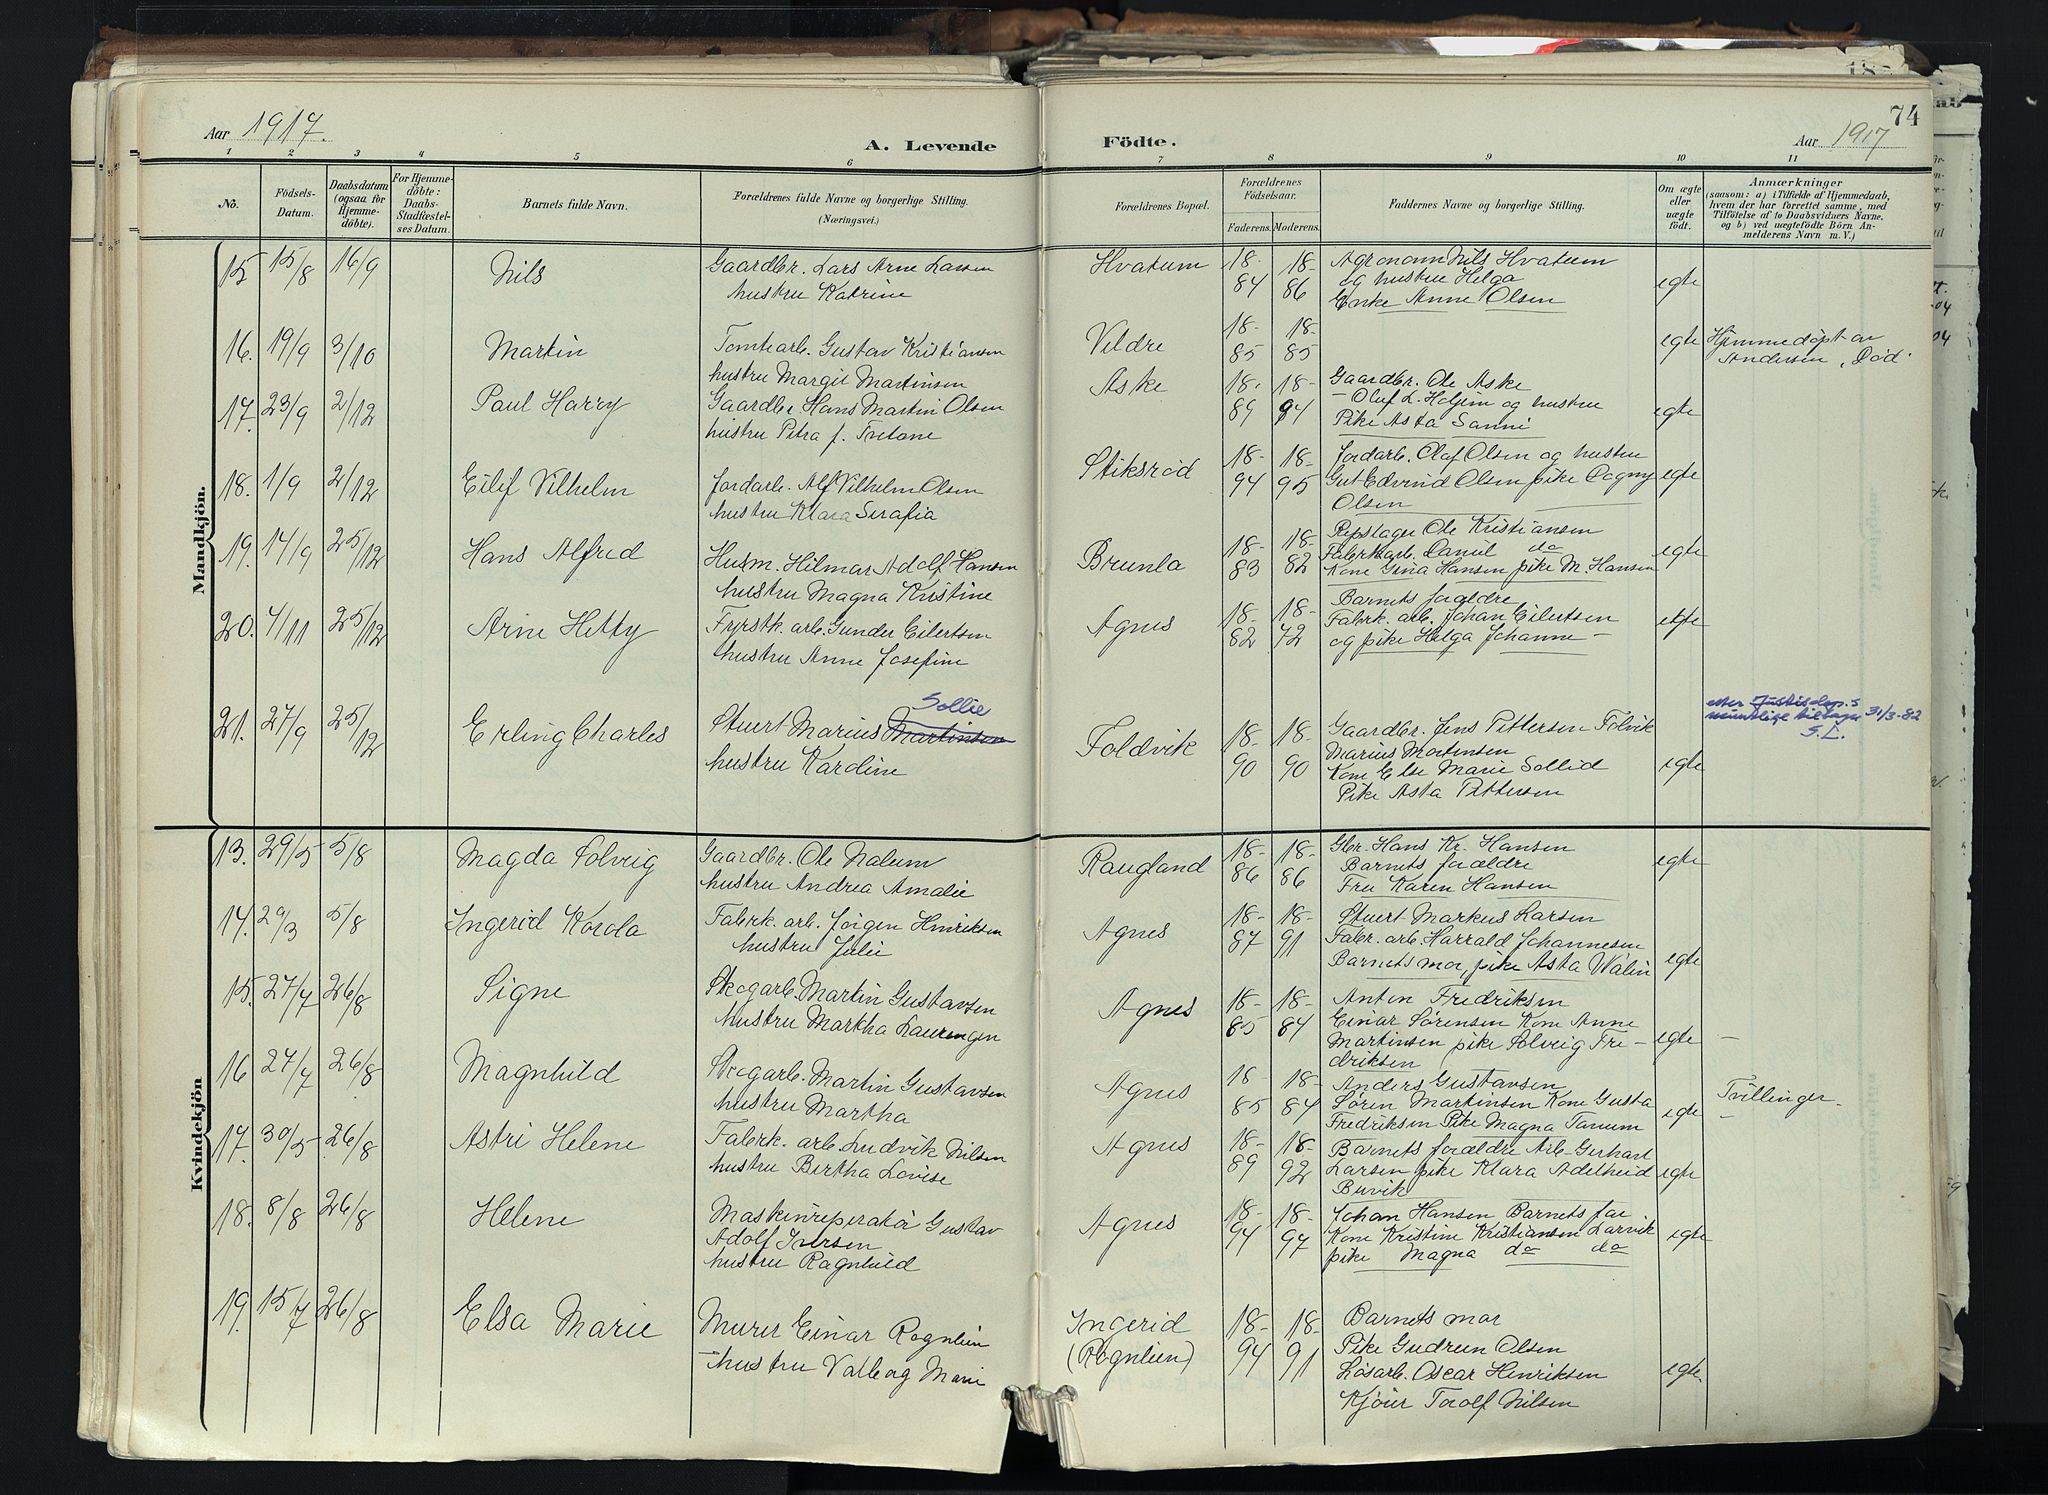 74
Aar 1917.
A. Levende
Födte.
Aar 1917
1 2 3 4 5 6 7 8 9 10 11
No.
Födsels-
Datum.
Daabsdatum
(ogsaa for
Hjemme-
döbte).
For Hjemme-
döbte:
Daabs-
Stadfæstel-
ses Datum.
Barnets fulde Navn.
Forældrenes fulde Navne og borgerlige Stilling.
(Næringsvei.)
Forældrenes Bopæl.
Forældrenes
Födselsaar.
Faderens. Moderens.
Faddernes Navne og borgerlige Stilling.
Om ægte
eller
uægte
födt.
Anmærkninger
(saasom: a) i Tilfælde af Hjemmedaab,
hvem der har forrettet samme, med
Tilföielse af to Daabsvidners Navne.
og b) ved uægtefödte Börn An-
melderens Navn m. V.)
Mandkjön.
15 15/8 16/9 Nils
Gaardbr. Lars Arne Larsen
hustru Katrine
Hvatum
18- 18-
84 86
Agronom Nils Hvatum
og hustru Helga
Enke Anne Olsen
egte
16. 19/9 3/10 Martin
Tomtearb. Gustav Kristiansen
hustru Margit Martinsen
Vildre
18- 18-
85 85
egte
Hjemmedøpt av
Andersen, Død.
17. 23/9 2/12 Paul Harry
Gaardbr. Hans Martin Olsen
hustru Petra f. Tretone
Aske
18- 18-
89 94
Gaardbr. Ole Aske
- Oluf L. Holjem og hustru
Pike Asta Sanni
egte
18. 1/9 2/12 Eilif Vilhelm
Jordarb. Alf Vilhelm Olsen
hustru Klara Serafia
Stiksrød
18- 18-
94 95
Jordarb. Olaf Olsen og hustru
Gut Edvind Olsen pike Dagny
Olsen
egte
19. 14/9 25/12 Hans Alfred
Husm. Hilmar Adolf Hansen
hustru Magna Kristine
Brunla
18- 18-
83 82
Repslager Ole Kristiansen
Fabrkarb. Daniel do
Kone Gina Hansen pike M. Hansen
egte
20. 4/11 25/12 Arne Hetty
Fyrstk. arb. Gunder Eilertsen
hustru Anne Josefine
Agnes
18- 18-
82 72
Barnets forældre
Fabrk. arb. Johan Eilertsen
og pike Helga Johanne -
egte
21. 27/9 25/12 Erling Charles
Sollie
Stuert Marius Martinsen
hustru Karoline
Foldvik
18- 18-
90 90
Gaardbr. Jens Pettersen Folvik
Marius Martinsen
Kone Else Marie Sollid
Pike Asta Pettersen
egte
etter Justisdep.s
muntlige 31/3-82
S.L.
Kvindekjön
13. 29/5 5/8 Magda Solveig
Gaardbr. Ole Nalum
hustru Andrea Amalie
Raugland
18- 18-
86 86
Gbr. Hans Kr. Hansen
Barnets forældre
Fru Karen Hansen
egte
14. 29/3 5/8 Ingerid Korola
Fabrk. arb. Jørgen Henriksen
hustru Julie
Agnes
18- 18-
97 91
Stuert Markus Larsen
Fabr. arb. Harrald Johannesen
Barnets mor, pike Asta Walin
egte
15. 27/7 26/8 Signe
Skogarb. Martin Gustavsen
hustru Martha Laurengen
Agnes
18- 18-
85 84
Anton Fredriksen
Einar Sørensen Kone Anne
Martinsen pike Solveig Fre-
driksen
egte
-
16 27/7 26/8 Magnhild
Skogarb. Martin Gustavsen
hustru Martha
Agnes
18- 18-
85 84
Anders Gustavsen
Søren Martinsen Kone Gusta
Fredriksen Pike Magna Tanum
egte
Tvillinger.
-
17. 30/5 26/8 Astri Helene
Fabrk. arb. Ludvik Nilsen
hustru Birtha Lovise
Agnes
18- 18-
89 92
Barnets forældre Arb. Gerhart
Larsen pike Klara Adelheid
Buvik
egte
18. 8/8 26/8 Helene
Maskinreperatør Gustav
Adolf Iversen
hustru Ragnhild
Agnes
18- 18-
94 97
Johan Hansen Barnets far
Kone Kristine Kristiansen Larvik
pike Magna do do
egte
19. 15/7 26/8 Elsa Marie
Murer Einar Rognlien
- hustru Valborg Marie
Ingerid
(Rognlien)
18- 18-
94 91
Barnets mor
Pike Gudrun Olsen
Løsarb. Oscar Henriksen
Kjører Torolf Nilsen
egte.